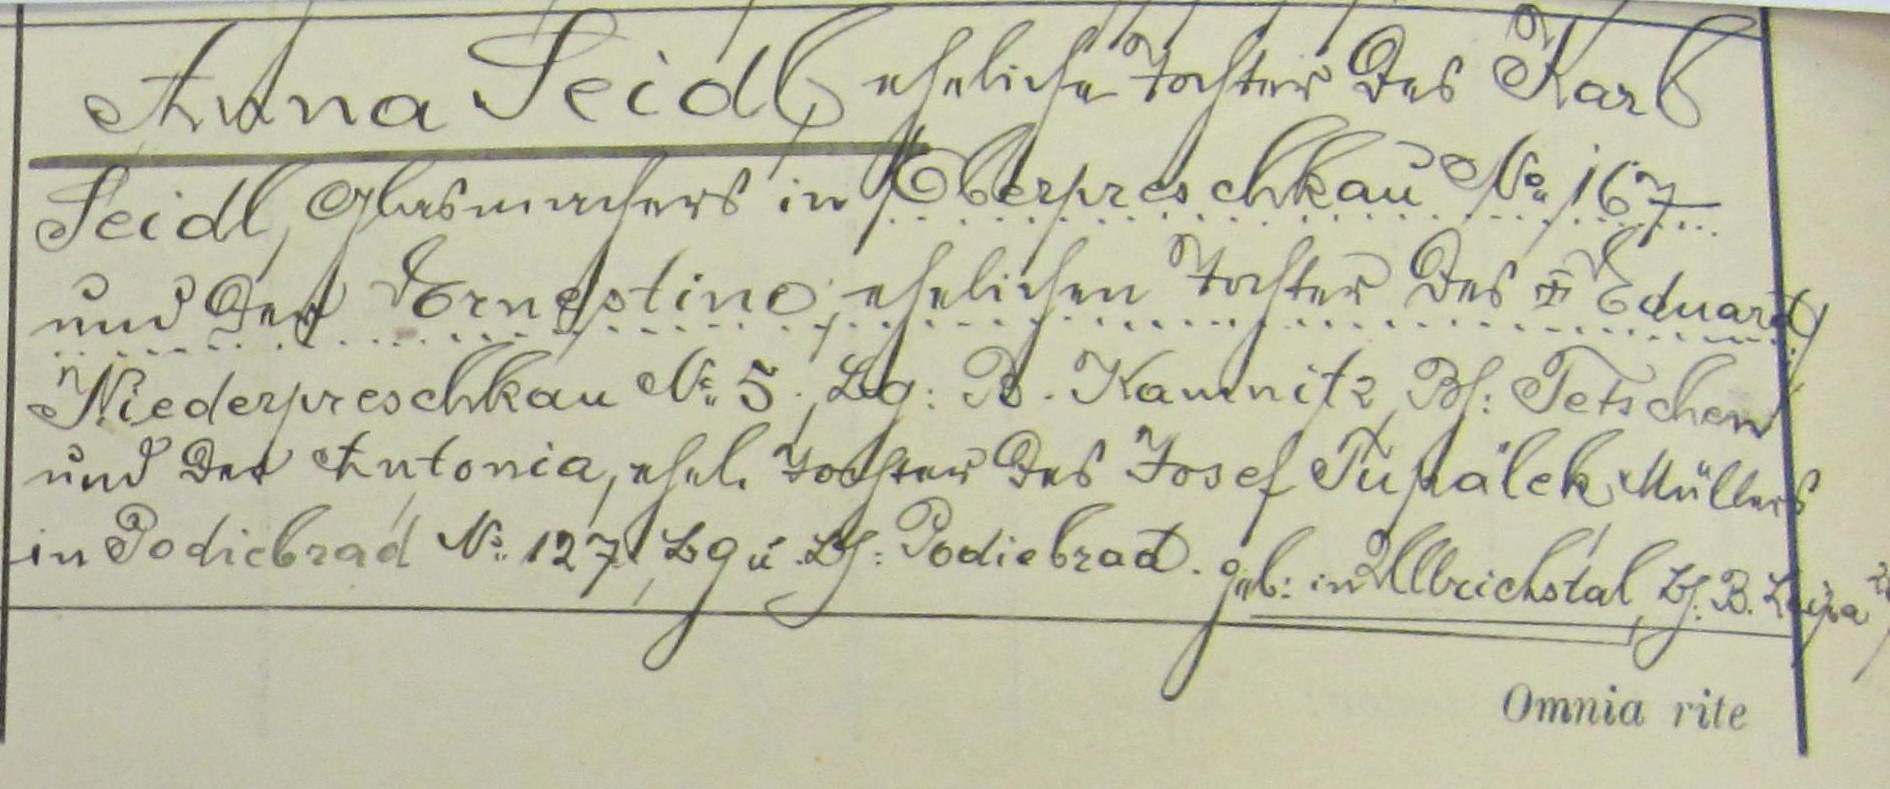 Anna Seidl eheliche Tochter des Karl
Seidl, Glasmachers in Oberpreschkau No 167
und der Ernestine, ehelichen Tochter des Eduard
in Niederpreschkau No 5, Bg: B. Kamnitz, Bh: Tetschen
und der Antonia, ehel. Tochter des Josef Müllers
in Podiebrad No 127, Bg u. Bh: Podiebrad. geb: in Ullrichstal, Bh. B. Leipa
Omnia rite